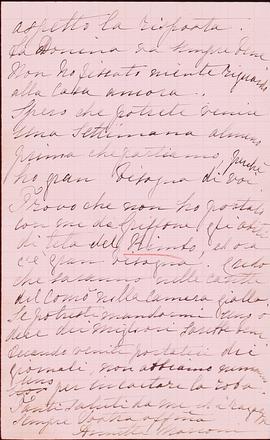 aspetto la risposta.
La Nonina va sempre bene
Non ho fissato niente riguardo
alla casa ancora.
Spero che potrete venire
una settimana almeno
prima che partiamo, perché
ho gran bisogno di voi
Trovo che non ho portato
con me da
di tela del ed ora
c'è gran bisogno. Credo
che saranno nelle cassette
del Comò nella camera gialla
Se potesti mandarmi uno o
due dei migliori sarebbe bene
Quando venite portatevi dei
giornali, non abbiamo
per incartare la roba.
Tanti saluti da me e i ragazzi
Sempre